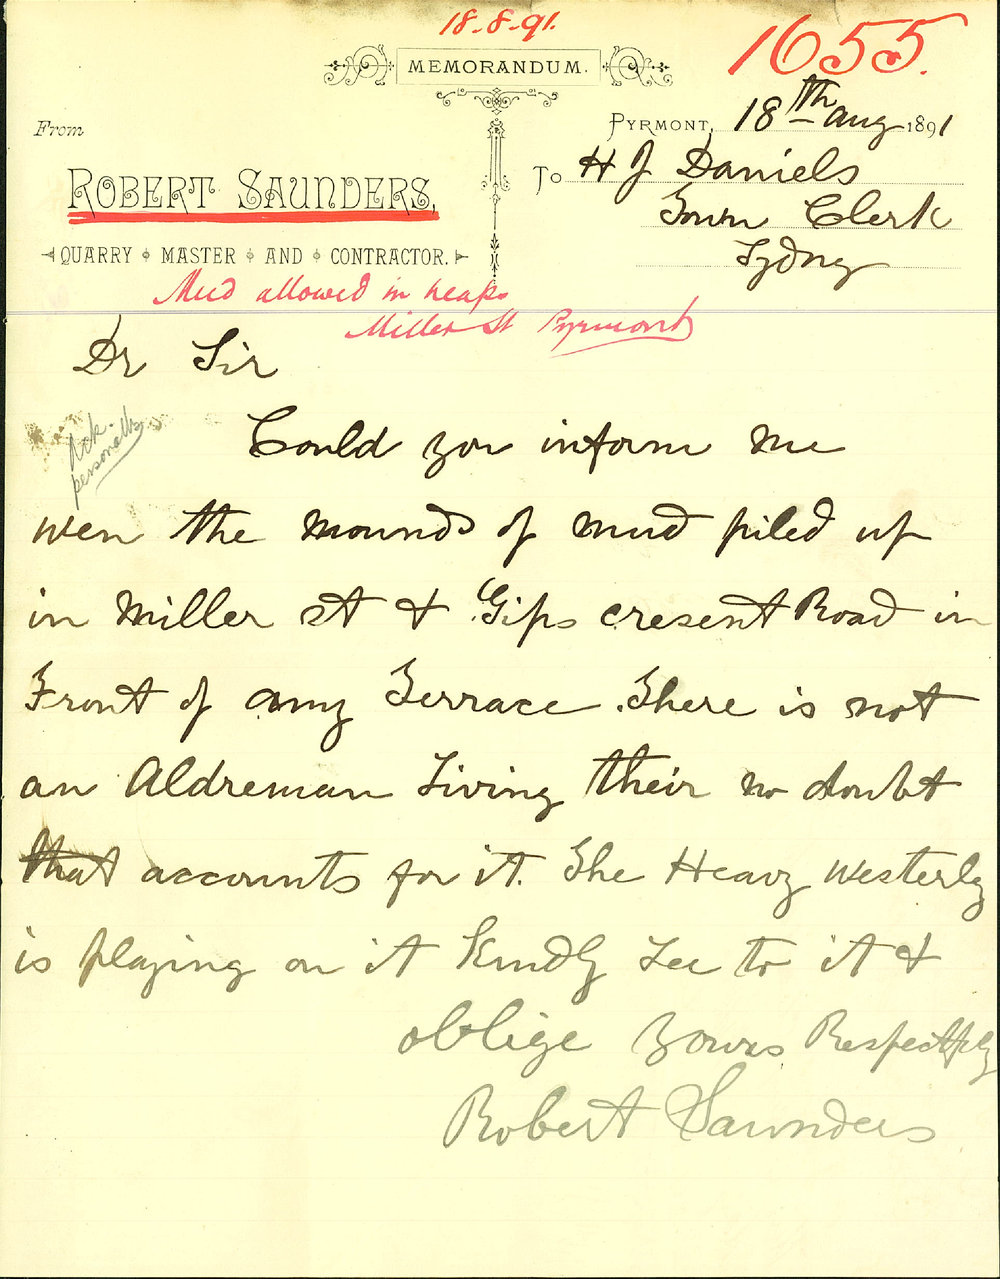 18-8-91.
1655.
MEMORANDUM.
From
PYRMONT, 18th aug 1891
ROBERT SAUNDERS,
To H J Daniels
Town Clerk
Sydney
QUARRY MASTER AND CONTRACTOR.
Mud allowed in heaps
Miller St Pyrmont
Dr Sir
Ack.
personally
Could you inform me
wen the mounds of mud piled up
in Miller st & Gips cresent Road in
Front of amy Terrace. There is not
an Aldreman Living their no doubt
that accounts for it. The Heavy Westerly
is playing on it Kindly See to it &
oblige yours Respectfly
Robert Saunders